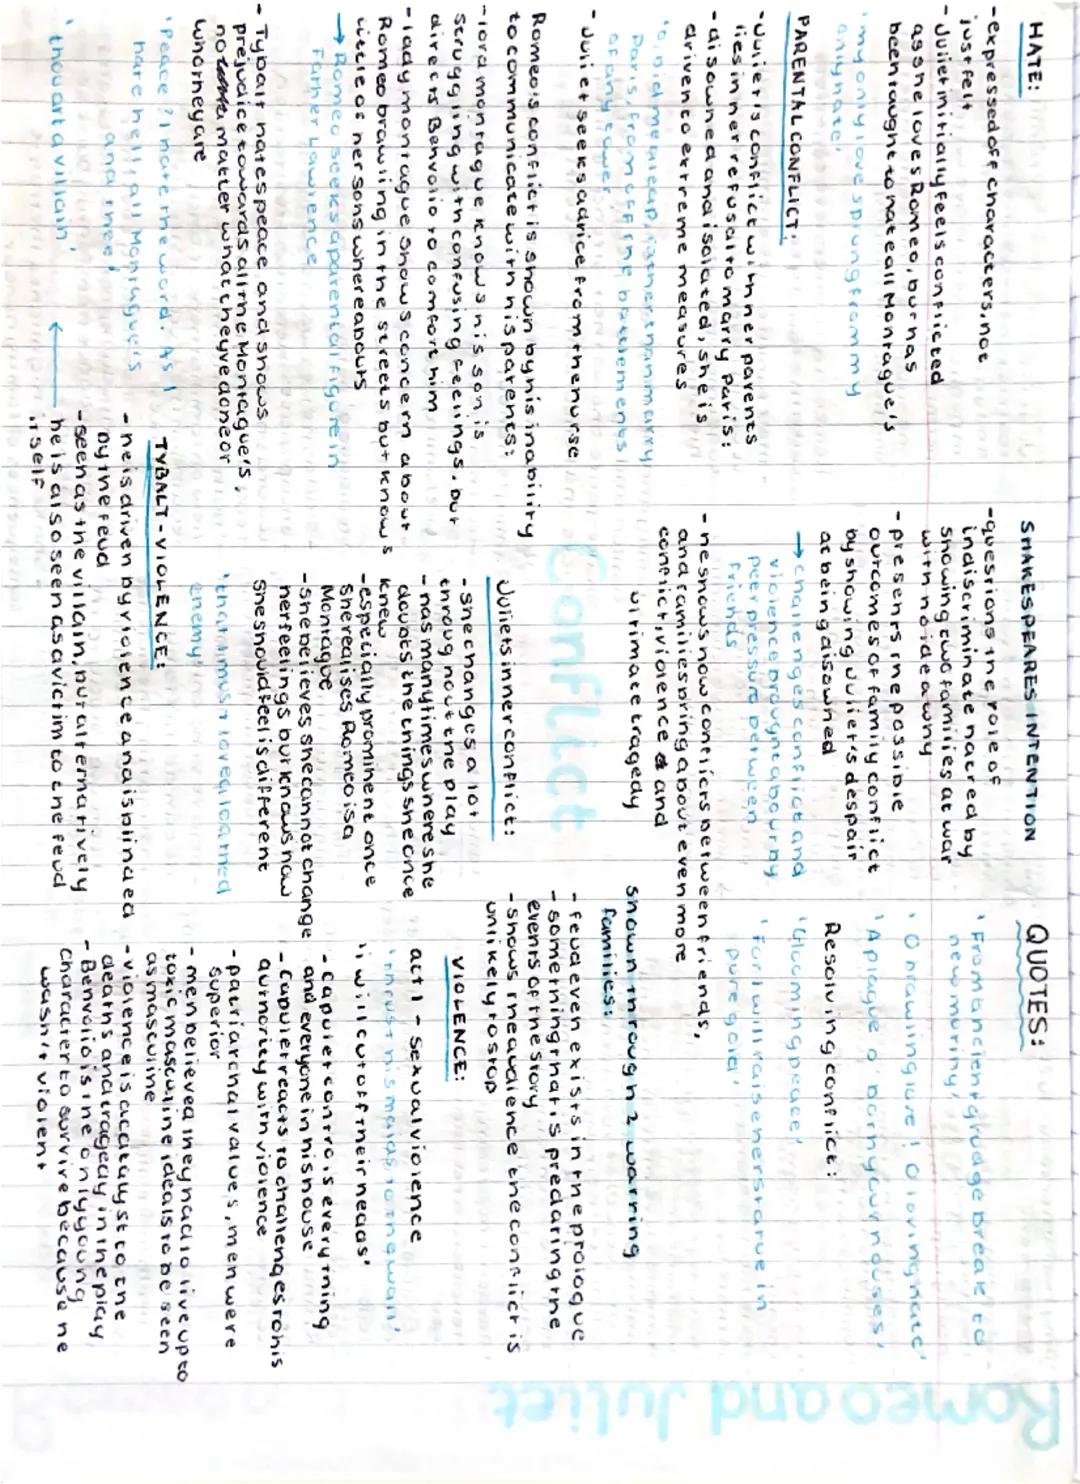 Romeo and Juliet
Conflict
HATE:
- expressed off characters, not
just felt
- Juliet initially feels conflicted
as she loves Romeo, but has
been taught to hate all Montague's
'my only love sprung from my
only hate'
PARENTAL CONFLICT:
- Juliet's conflict with her parents
lies in her refusal to marry Paris:
- disowned and isolated, she is
driven to extreme measures
'o, bid me leap, rather than marry
Paris, from off the battlements
of any tower'
- Juliet seeks advice from the nurse
Romeo's conflict is shown by his inability
to communicate with his parents:
- lord montague knows his son is
struggling with confusing feelings, but
directs Benvolio to comfort him
- lady montague shows concern about
Romeo brawling in the streets but knows
little of her sons whereabouts
→ Romeo seeks a parental figure in
Father Lawrence
- Tybalt hates peace and shows
prejudice towards all the Montague's,
no matter what they've done or
who they are
'Peace? I hate the word. As I
hate hell, all Montague's
and thee'
'thou art a villain'
SHAKESPEARES INTENTION
- questions the role of
indiscriminate hatred by
showing two families at war
with no idea why
- presents the possible
outcomes of family conflict
by showing Juliet's despair
at being disowned
→ challenges conflict and
violence brought about by
peer pressure between
friends
- he shows how conflicts between friends,
and families bring about even more
conflict, violence and
ultimate tragedy
Juliets inner conflict:
- she changes a lot
throughout the play
- has many times where she
doubts the things she once
knew
- especially prominent once
she realises Romeo is a
Montague
- she believes she cannot change
her feelings but knows how
she should feel is different
'that I must love a loathed
enemy'
TYBALT - VIOLENCE:
- he is driven by violence and is blinded
by the feud
- seen as the villain, but alternatively
he is also seen as a victim to the feud
itself
QUOTES:
'From ancient grudge break to
new mutiny'
'O brawling love! O loving hate'
'A plague o' both your houses'
Resolving conflict:
'Glooming peace'
'for I will raise her statue in
pure gold'
shown through 2 warring
families:
- feud even exists in the prologue
- something that is predating the
events of the story
- shows the audience the conflict is
unlikely to stop
VIOLENCE:
act 1 - sexual violence
'thrust his maids to the wall'
'i will cut off their heads'
- Capulet controls everything
and everyone in his house
- Capulet reacts to challenges to his
authority with violence
- patriarchal values, men were
superior
- men believed they had to live up to
toxic masculine ideals to be seen
as masculine
- violence is a catalyst to the
deaths and tragedy in the play
- Benvolio is the only young
character to survive because he
wasn't violent